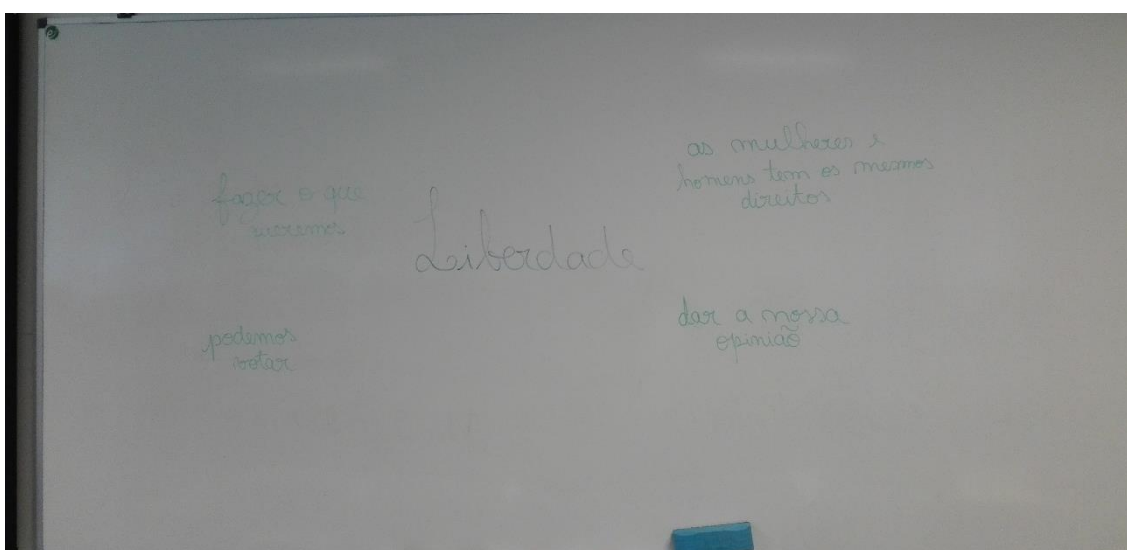 fazer o que
queremos
Liberdade
as mulheres e
homens tem os mesmos
direitos
podemos
votar
dar a nossa
opinião